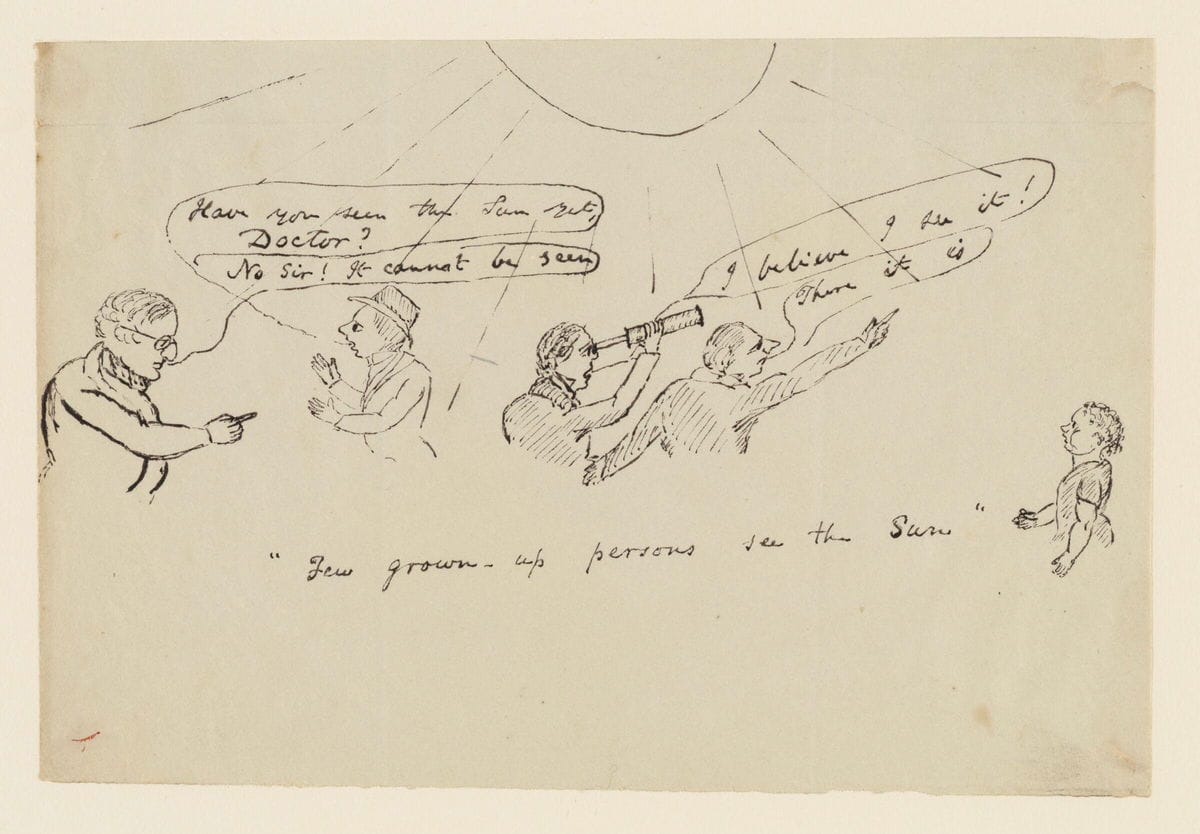 Have you seen the Sun yet,
Doctor?
No Sir! It cannot be seen
I believe I see it!
There it is
"Few grown-up persons see the Sun"